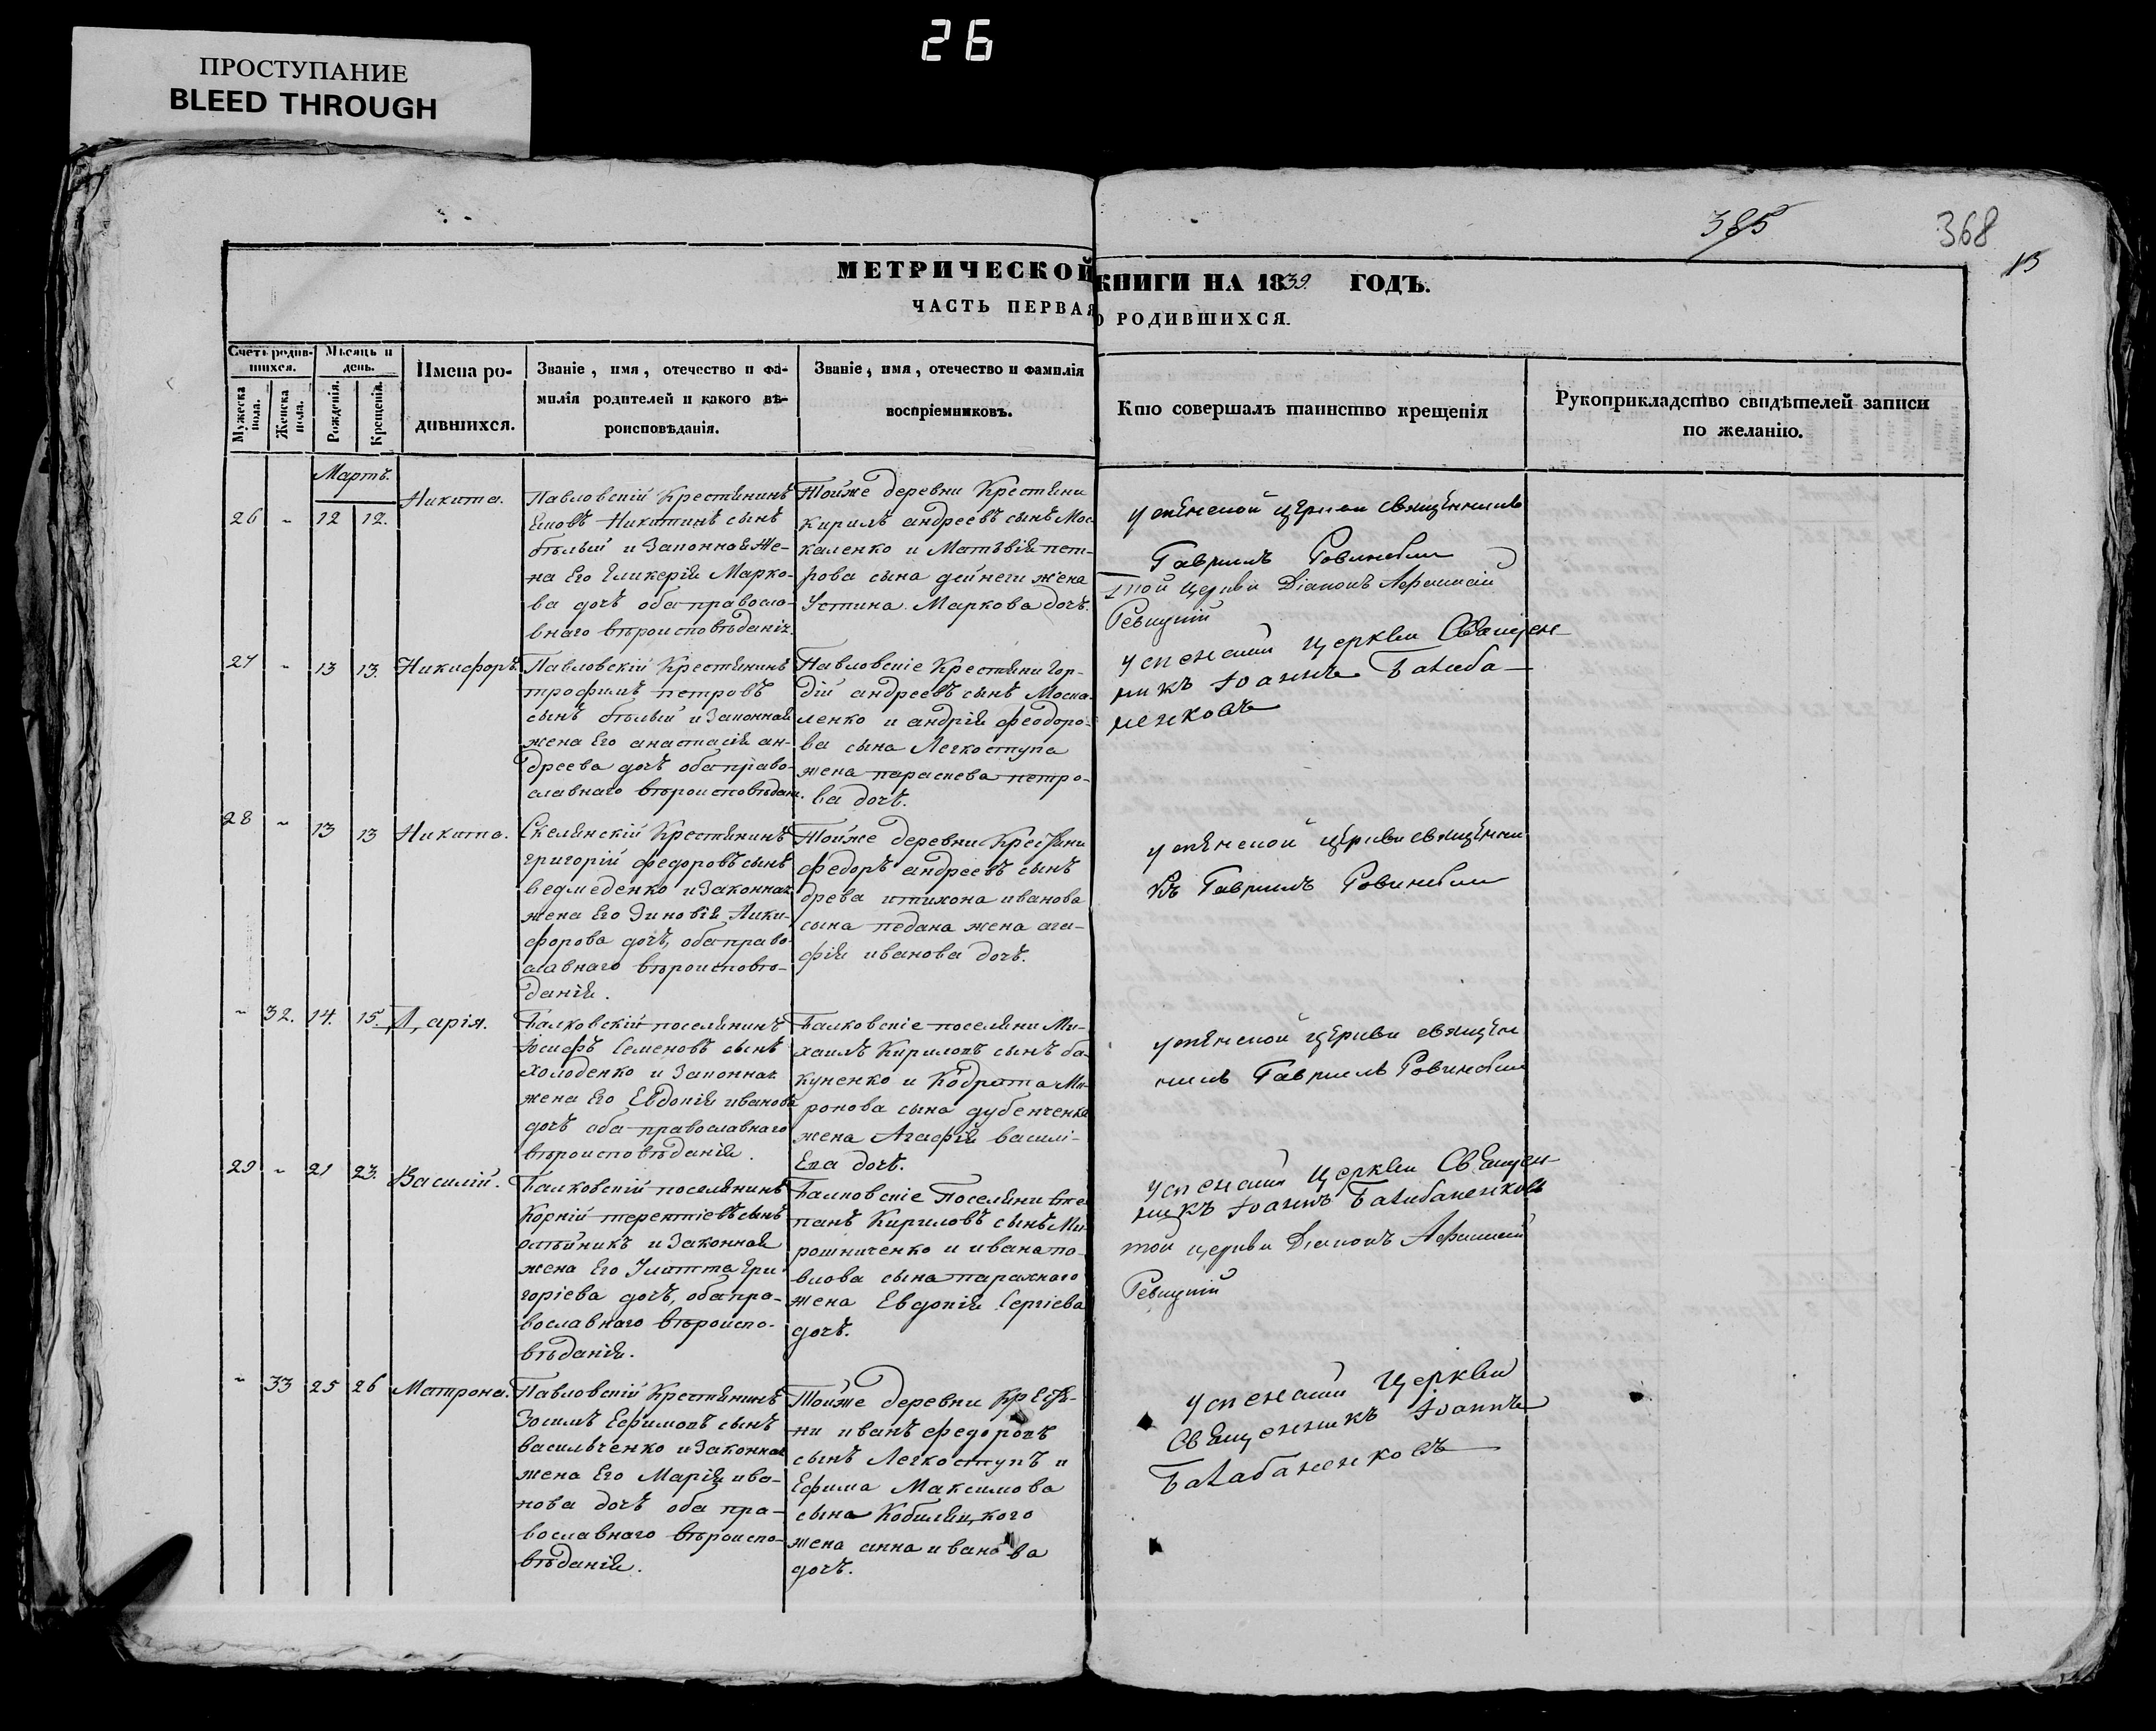 26
ПРОСТУПАНИЕ
BLEED THROUGH
385
368
13
МЕТРИЧЕСКОЙ КНИГИ НА 1839. ГОДЪ.
ЧАСТЬ ПЕРВАЯ О РОДИВШИХСЯ.
Счетъ родившихся.
Мужеска пола.
Женска пола.
Мѣсяцъ и день.
Рожденія.
Крещенія.
Имена ро-
дившихся.
Званіе, имя, отечество и фа-
милія родителей и какого вѣ-
роисповѣданія.
Званіе, имя, отечество и фамилія
воспріемниковъ.
Кто совершалъ таинство крещенія
Рукоприкладство свидѣтелей записи
по желанію.
Мартъ.
26 " 12 12. Никита.
Павловскій Крестянинъ
Никитинъ сынъ
бѣлый и Законная Же-
на Его Гликерія Марко-
ва дочь оба правосла-
внаго вѣроисповѣданія.
Тойже деревни Крестяни
Кирилъ андреевъ сынъ Мос-
каленко и Матвѣя пет-
рова сына дейнеги жена
Устина Маркова дочь.
успенской церкви священникъ
Гавриилъ
той церкви Діаконъ Афанасій
Ревицкій
27 " 13 13. Никифоръ.
Павловскій Крестянинъ
трофимъ петровъ
сынъ бѣлый и Законная
жена Его анастасія ан-
дреева дочь оба право-
славнаго вѣроисповѣдан.
Павловскіе Крестяни Гор-
дій андреевъ сынъ Моска-
ленко и андрія феодоро-
ва сына Легкоступа
жена параскева петро-
ва дочь.
успенской церкви Священ-
никъ Іоаннъ Балаба-
ненковъ
28 " 13 13 Никита.
Скелянскій Крестянинъ
григорій федоровъ сынъ
ведмеденко и Законная
жена Его Зиновія Ники-
форова дочь, оба право-
славнаго вѣроисповѣ-
данія.
Тойже деревни Крестяни
федоръ андреевъ сынъ
и тихона иванова
сына педана жена ага-
фія иванова дочь.
успенской церкви священни
къ Гавриилъ
" 32. 14. 15. Дарія.
Балковскій поселянинъ
Іосифъ Семеновъ сынъ
Холоденко и Законная
жена Его Евдокія иванова
дочь оба православнаго
вѣроисповѣданія.
Балковскіе поселяни Ми-
хаилъ Кириловъ сынъ ба-
куненко и Кодрата Ми-
ронова сына дубенченка
жена Агафія василі-
Ева дочь.
успенской церкви священ
никъ Гавриилъ
29 " 21 23. Василій.
Балковскій поселянинъ
Корній терентіевъ сынъ
олѣйникъ и Законная
жена Его Улитта Гри-
горіева дочь, оба пра-
вославнаго вѣроиспо-
вѣданія.
Балковскіе Поселяни
Кириловъ сынъ Ми-
рошниченко и ивана па-
влова сына
жена Евдокія Сергіева
дочь.
успенской церкви Священ-
никъ Іоаннъ Балабаненковъ
той церкви Діаконъ Афанасій
Ревицкій
" 33 25 26 Матрона.
Павловскій Крестянинъ
Зосимъ Ефимовъ сынъ
васильченко и Законная
жена Его Марія ива-
нова дочь оба пра-
вославнаго вѣроиспо-
вѣданія.
Тойже деревни Крестя-
ни иванъ федоровъ
сынъ Легкоступъ и
Ефима Максимова
сына Кобиляцкого
жена анна иванова
дочь.
успенской Церкви
Священникъ Іоаннъ
Балабаненковъ